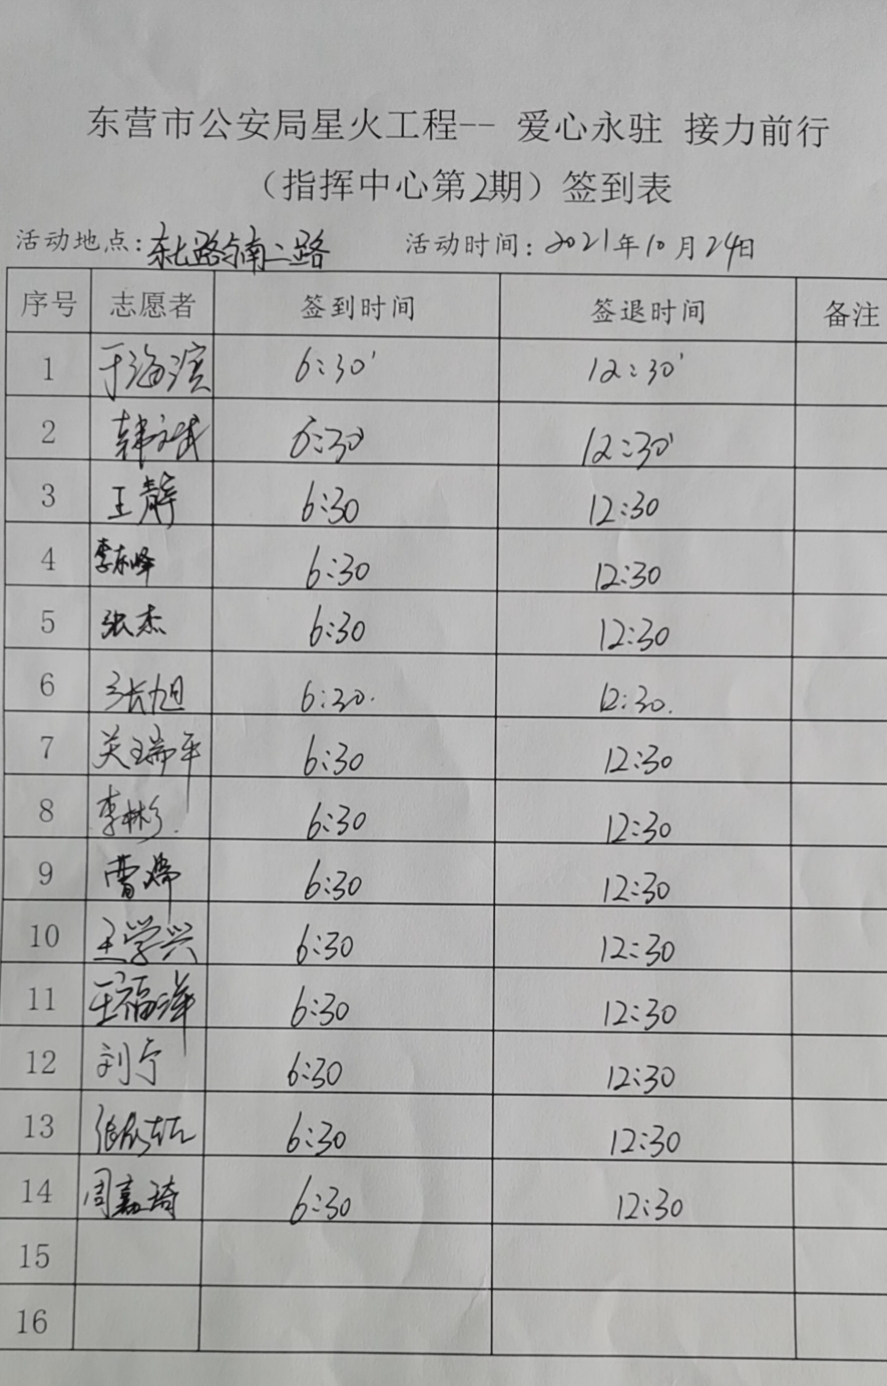 东营市公安局星火工程-- 爱心永驻 接力前行
（指挥中心第2期）签到表
活动地点：东七路与南二路 活动时间：2021年10月24日
序号 志愿者 签到时间 签退时间 备注
1 于海滨 6:30' 12:30'
2 韩文武 6:30' 12:30'
3 王静 6:30 12:30
4 李东峰 6:30 12:30
5 张杰 6:30 12:30
6 张旭 6:30. 12:30.
7 关瑞平 6:30 12:30
8 李彬 6:30 12:30
9 曹婷 6:30 12:30
10 王学兴 6:30 12:30
11 王福洋 6:30 12:30
12 刘宁 6:30 12:30
13 6:30 12:30
14 周嘉琦 6:30 12:30
15
16